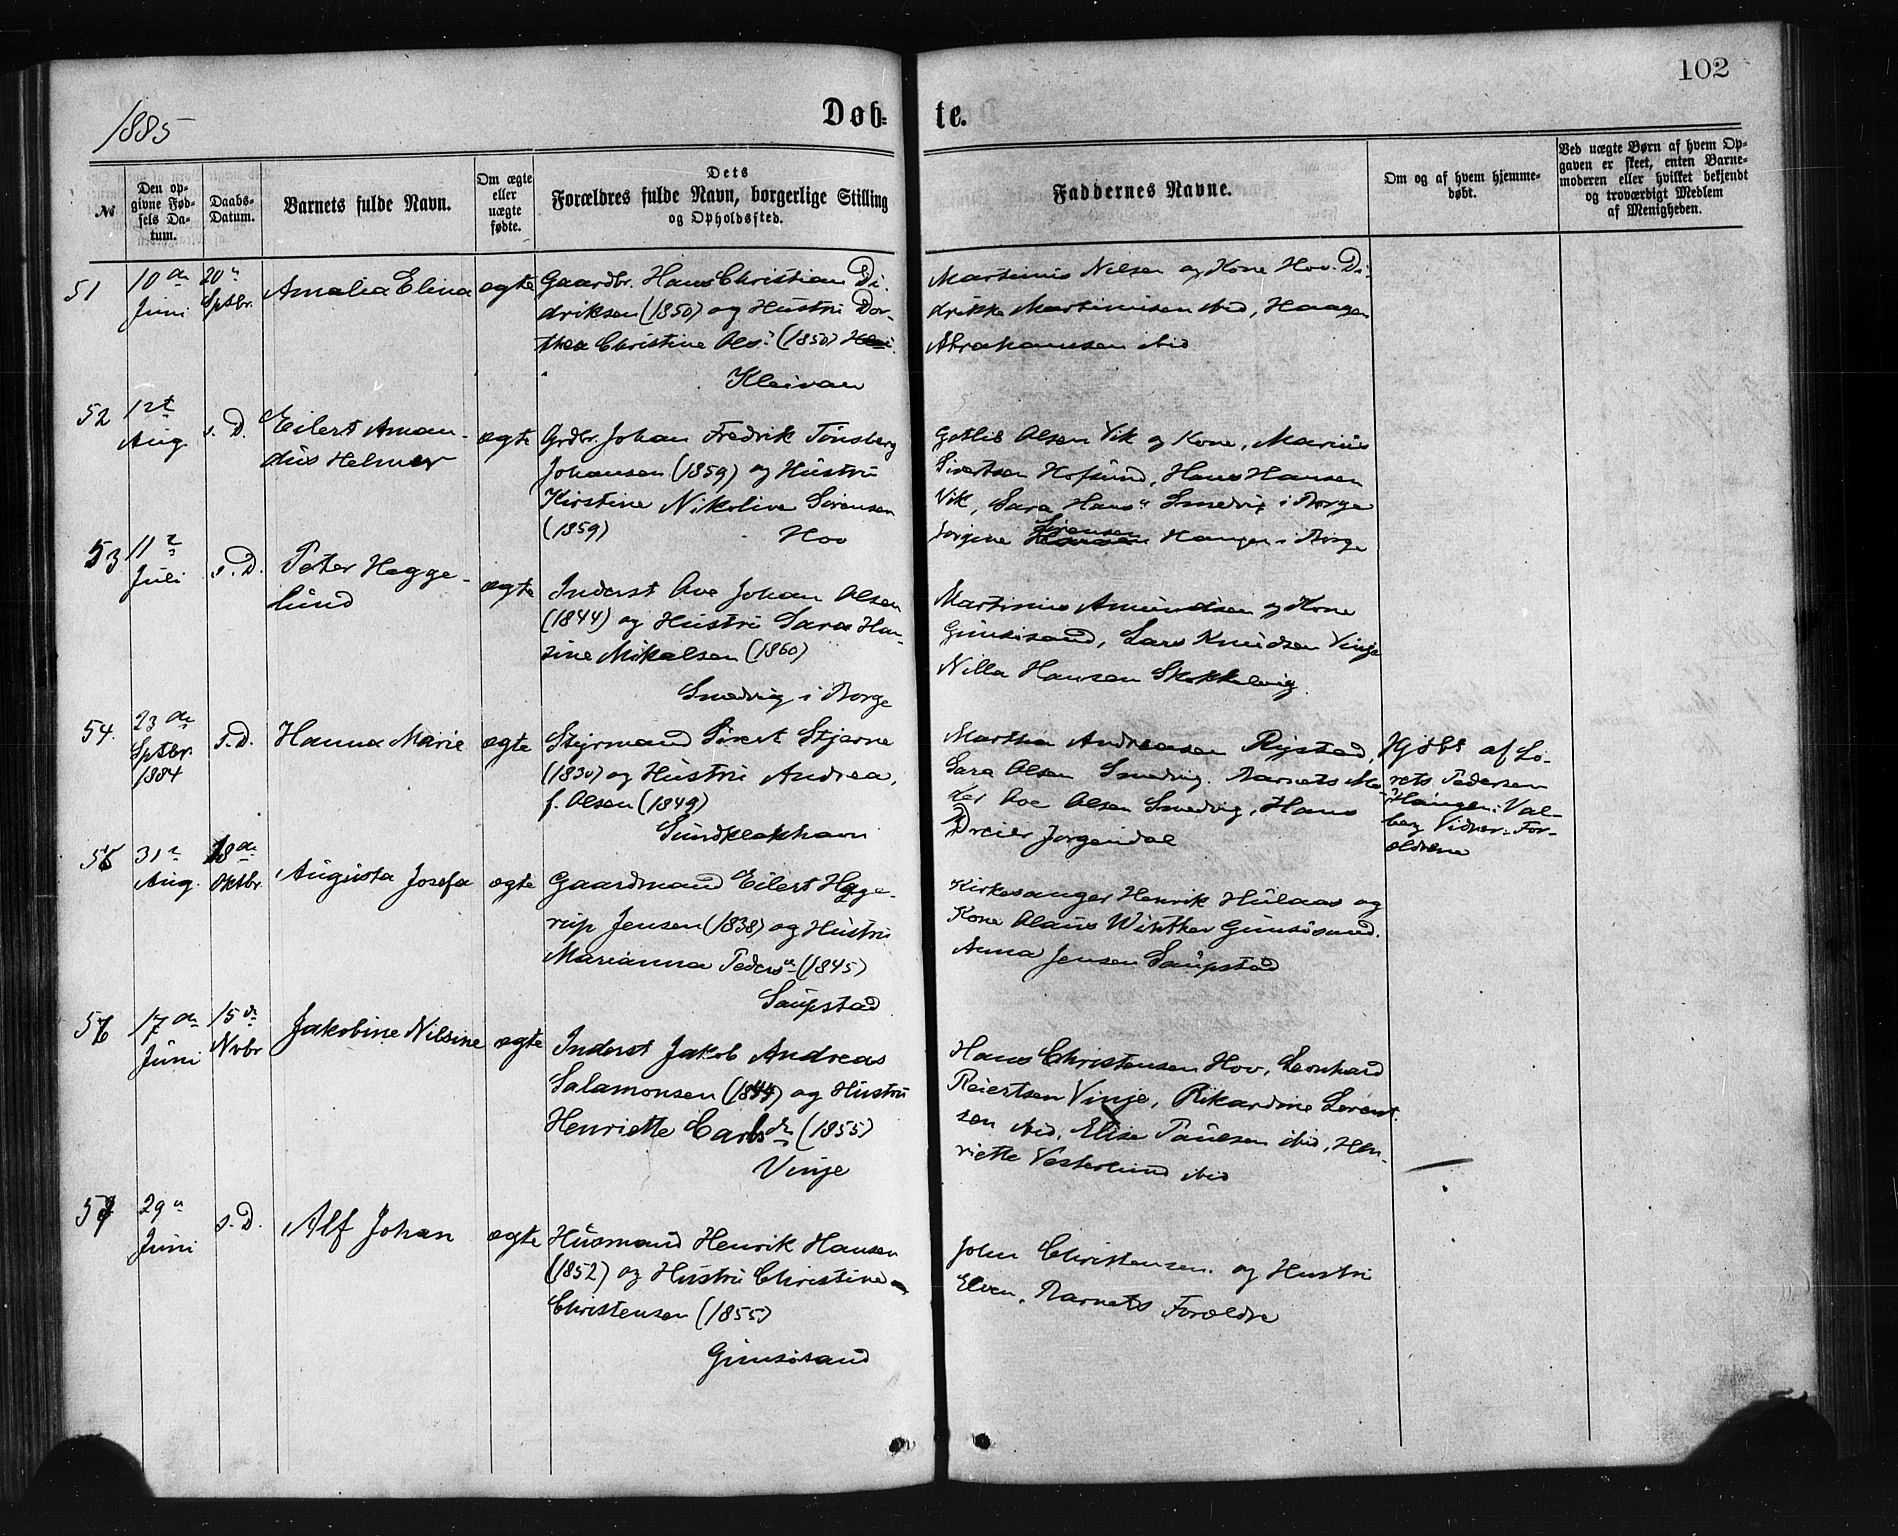 102
1885
Døb-
te.
№
Den op-
givne Fød-
sels Da-
tum.
Daabs-
Datum.
Barnets fulde Navn.
Om ægte
eller
uægte
fødte.
Dets
Forældres fulde Navn, borgerlige Stilling
og Opholdssted.
Faddernes Navne.
Om og af hvem hjemme-
døbt.
Ved uægte Børn af hvem Op-
gaven er skeet, enten Barne-
moderen eller hvilket bekjendt
og troværdigt Medlem
af Menigheden.
51
10de
Juni
20de
Sptbr.
Amalia Elina
ægte
Gaardbr. Hans Christian Di-
driksen (1850) og Hustru Dor-
thea Christine Ols. (1850)
Kleivan
Martinus Nilsen og Kone Hov. Di-
drikke Martinusen ibid, Haagen
Abrahamsen ibid
52
1st
Aug.
s. D.
Eilert Aman-
dus Helmer
ægte
Grdbr. Johan Fredrik Tønsberg
Johansen (1859) og Hustru
Kirstine Nikoline Sørensen
(1859)
Hov
Gotlib Olsen Vik og Kone, Marius
Sivertsen Hofsund, Hans Hansen
Vik, Sara Hans Smedvig i Borge
Jorgine Sørensen Hanger i Borge
53
11te
Juli
s. D.
Peter Hegge-
lund
ægte
Inderst Ove Johan Olsen
(1844) og Hustru Sara Han-
sine Mikalsen (1860)
Smedvig i Borge
Martinus Amundsen og Kone
Gimsøsand, Lars Knudsen Vinje
Nilla Hansen Skokkelvig.
54.
23de
Sptbr.
1884
s. D.
Hanna Marie
ægte
Styrmand Sivert Stjerne
(1830) og Hustru Andrea,
f. Olsen (1849)
Sundklakhavn
Martha Andreasen Rystad,
Sara Olsen Smedvig. Barnets Mo-
der Ove Olsen Smedvig, Hans
Dreier Jørgendal
Hjdbt af Lo-
rets Pedersen
Haugen i Val-
berg Vidner: For-
ældrene
55
31te
Aug.
18de
Oktbr.
Augusta Josefa
ægte
Gaardmand Eilert Hage-
rup Jensen (1838) og Hustru
Marianna Peders. (1845)
Saupstad
Kirkesanger Henrik Hulaas og
Kone Olaus Winther Gimsøsand.
Anna Jensen Saupstad
56
17de
Juni
15de
Nvbr
Jakobine Nilsine
ægte
Inderst Jakob Andreas
Salamonsen (1844) og Hustru
Henriette Carlsdtr (1855)
Vinje
Hans Christensen Hov, Leonhard
Reiertsen Vinje, Rikardine Lorent-
sen ibid, Elise Paulsen ibid, Hen-
riette Vesterlund ibid
57
29de
Juni
s. D.
Alf Johan
ægte
Husmand Henrik Hansen
(1852) og Hustru Christine
Christensen (1855)
Gimsøsand
John Christensen. og Hustru
Elven, Barnets Forældre